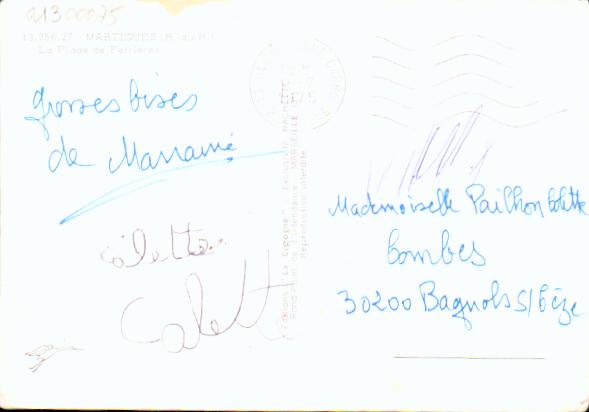 01300075
13.056.27 - MARTIGUES (B.-du-R.)
La Plage de Ferrières
grosses bises
de Marraine
Colette
Colett
Editions "La Cigogne"
MARSEILLE
Reproduction interdite
Mademoiselle Pailhon Colette
Combes
30200 Bagnols S/Cèze